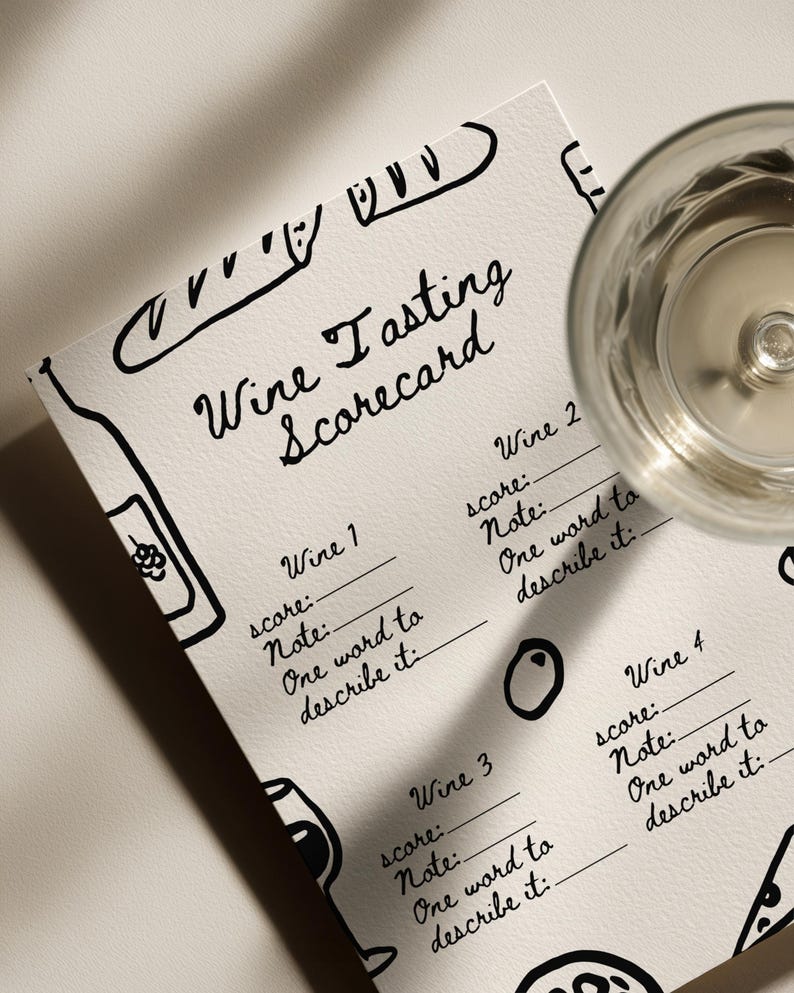 Wine Tasting
Scorecard
Wine 1
score:
Note:
One word to
describe it:
Wine 2
score:
Note:
One word to
describe it:
Wine 3
score:
Note:
One word to
describe it:
Wine 4
score:
Note:
One word to
describe it: